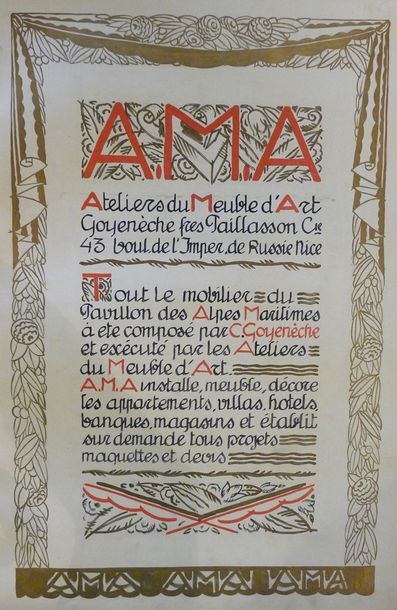 A.M.A
Ateliers du Meuble d'Art
Goyenèche fres Paillasson Cie
43 boul. de l'Imper. de Russie Nice
Tout le mobilier du
Pavillon des Alpes Maritimes
à ete composé par C. Goyenèche
et exécuté par les Ateliers
du Meuble d'Art.
A.M.A installe, meuble, décore
les appartements, villas, hotels,
banques, magasins et établit
sur demande tous projets
maquettes et devis
AMA AMA AMA